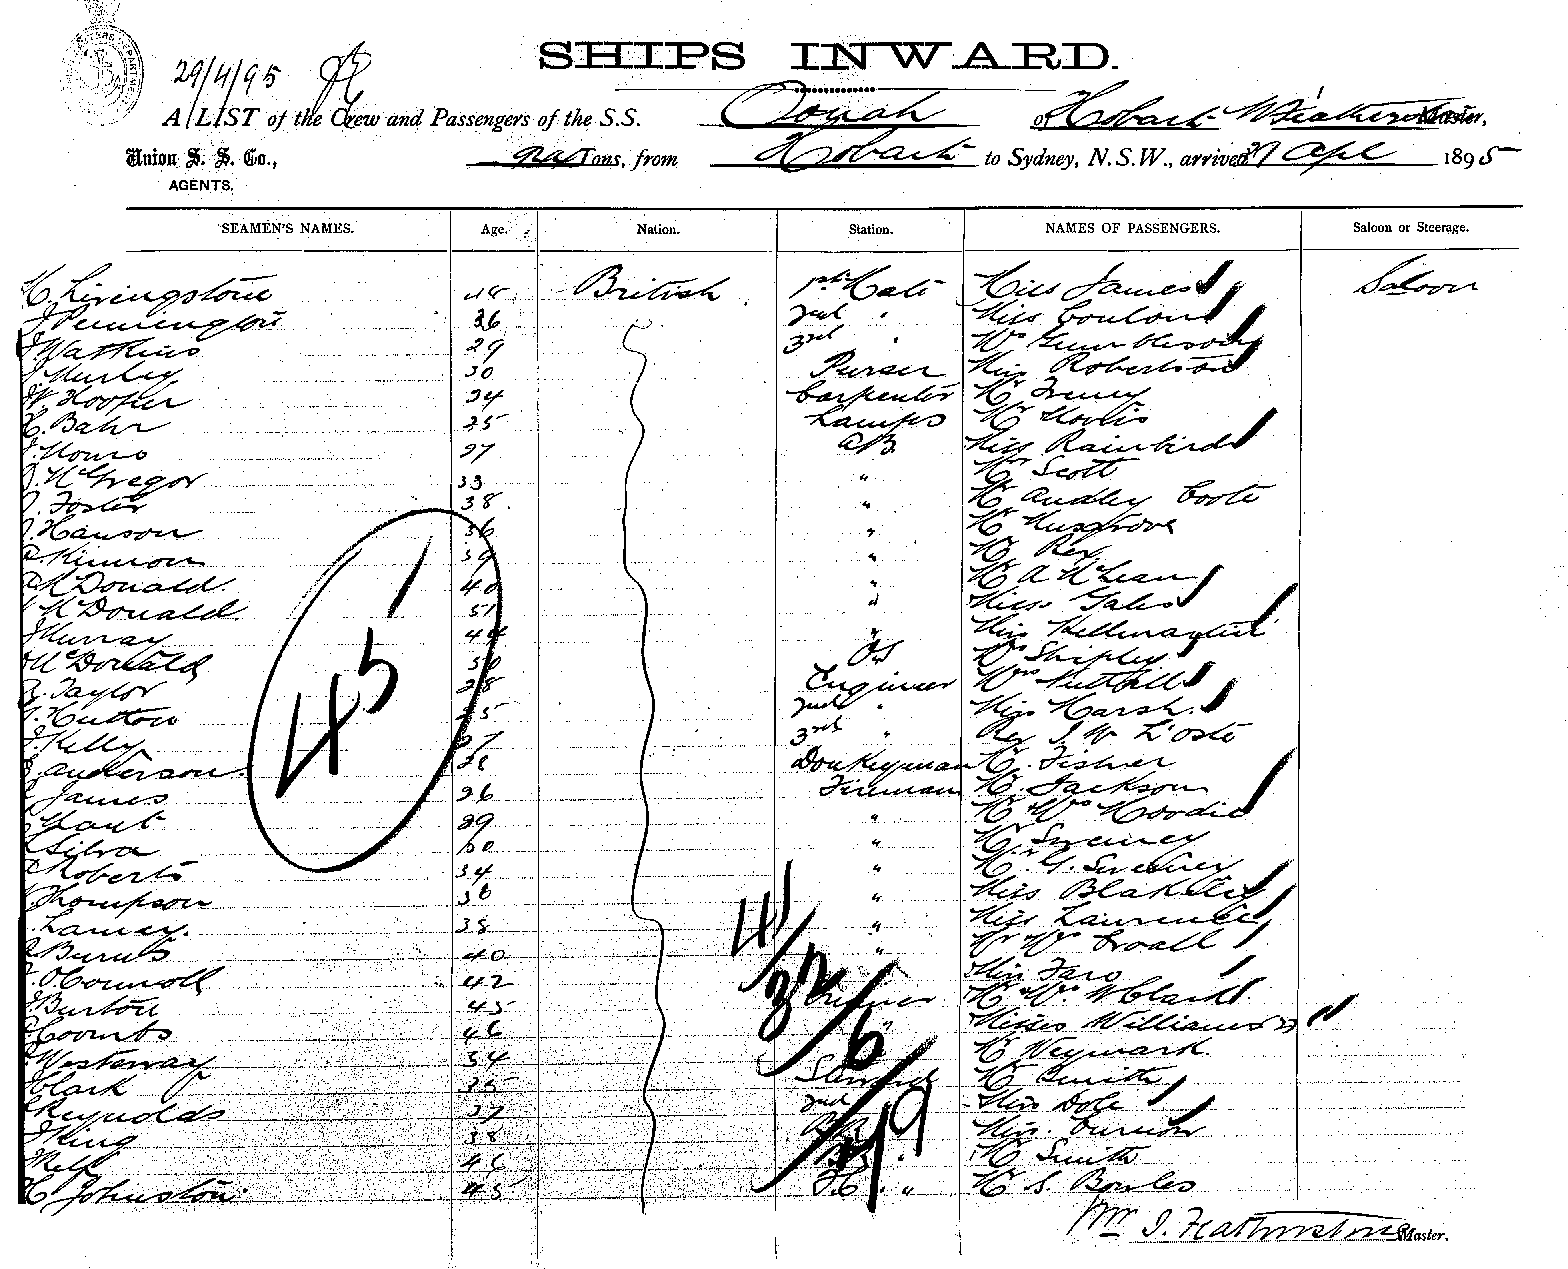 29/4/95
SHIPS INWARD.
A LIST of the Crew and Passengers of the S.S. Oonah of Hobart W Featherstone Master,
Union S. S. Co., Tons, from Hobart to Sydney, N.S.W., arrived 29 Apl 1895
AGENTS.
SEAMEN'S NAMES. Age. Nation. Station. NAMES OF PASSENGERS. Saloon or Steerage.
Livingstone 48 British 1st Mate Miss James Saloon
J Pennington 36 2nd " Miss Coulon
J Watkins 29 3rd "
J Hurley 30 Purser Miss Robertson
W Hooper 34 Carpenter Mr
C. Bahr 25 Lamps Mr
27 A.B. Miss Rainbird
J. McGregor 33 " Mr Scott
J. Foster 38 " Mr Audley Coote
J. Hanson 36 " Mr Musgrove
Kinnon 39 " Mr Rex
McDonald 40 " Mr A McLean
McDonald 51 " Miss Gales
J Murray 44 " Miss
McDonald 50 OS Mrs Shipley
Taylor 28 Engineer Mrs Nuthall
Hutton 25 2nd " Miss Marsh
J. Kelly 27 3rd " Rev J W L'Oste
Anderson 28 Donkeyman Mr Fisher
James 26 Fireman Mr Jackson
29 " Mr & Mrs Moodie
Silva 60 " Mr Sweeney
Roberts 34 " Mr G. Sweeney
Thompson 38 " Miss Blakeley
38 " Miss Lawrence
Burns 40 " Mr & Mrs Croall
O'Connell 42 Miss
Burton 45 Trimmer Mr & Mrs W Clark
Coombs 46 " Misses Williams 2
Westaway 34 Mr Weymark
Clark 35 Steward Mr Smith
Reynolds 37 2nd Miss Dole
J King 38 Miss
46 Mr Smith
C Johnston 45 F.C. " Mr S Bowles
45
41/
32/
6/
79
Wm J. Featherstone Master.